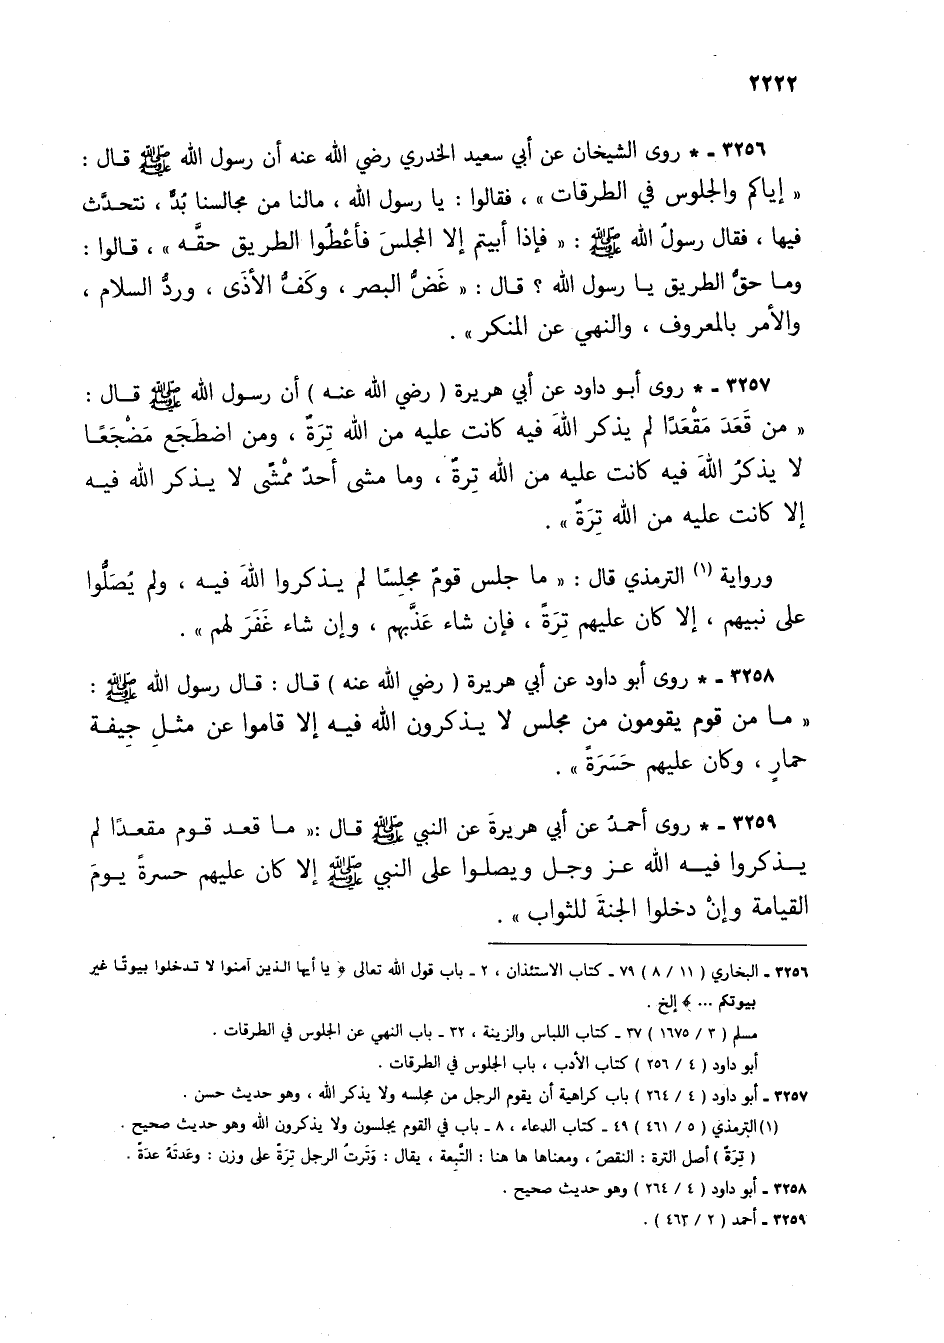 ٢٢٢٢
٣٢٥٦ - * روى الشيخان عن أبي سعيد الخدري رضي الله عنه أن رسول الله ﷺ قال :
« إياكم والجلوس في الطرقات » ، فقالوا : يا رسول الله ، مالنا من مجالسنا بُدٌّ ، نتحدَّث
فيها ، فقال رسولُ الله ﷺ : « فإذا أبيتم إلا المجلسَ فأعْطُوا الطريق حقَّه » ، قالوا :
وما حقُّ الطريق يا رسول الله ؟ قال : « غَضُّ البصر ، وكَفُّ الأذَى ، وردُّ السلام ،
والأمر بالمعروف ، والنهي عن المنكر » .
٣٢٥٧ - * روى أبو داود عن أبي هريرة ( رضي الله عنه ) أن رسول الله ﷺ قال :
« من قَعَدَ مَقْعَدًا لم يذكر اللهَ فيه كانت عليه من الله تِرَةٌ ، ومن اضطَجَع مَضْجَعًا
لا يذكرُ اللهَ فيه كانت عليه من الله تِرةٌ ، وما مشى أحدٌ ممْشًى لا يذكر الله فيه
إلا كانت عليه من الله تِرَةٌ » .
ورواية (١) الترمذي قال : « ما جلس قومٌ مجلِسًا لم يذكروا اللهَ فيه ، ولم يُصَلُّوا
على نبيهم ، إلا كان عليهم تِرَةً ، فإن شاء عَذَّبهم ، وإن شاء غَفَرَ لهم » .
٣٢٥٨ - * روى أبو داود عن أبي هريرة ( رضي الله عنه ) قال : قال رسول الله ﷺ :
« ما من قوم يقومون من مجلس لا يذكرون الله فيه إلا قاموا عن مثلِ جِيفة
حمارٍ ، وكان عليهم حَسَرَةً » .
٣٢٥٩ - * روى أحمدُ عن أبي هريرةَ عن النبي ﷺ قال :« ما قعد قوم مقعدًا لم
يذكروا فيه الله عز وجل ويصلوا على النبي ﷺ إلا كان عليهم حسرةً يومَ
القيامة وإنْ دخلوا الجنةَ للثواب » .
٣٢٥٦ - البخاري ( ١١ / ٨ ) ٧٩ - كتاب الاستئذان ، ٢ - باب قول الله تعالى ﴿ يا أيها الذين آمنوا لا تدخلوا بيوتًا غير
بيوتكم ... ﴾ إلخ .
مسلم ( ٣ / ١٦٧٥ ) ٣٧ - كتاب اللباس والزينة ، ٣٢ - باب النهي عن الجلوس في الطرقات .
أبو داود ( ٤ / ٢٥٦ ) كتاب الأدب ، باب الجلوس في الطرقات .
٣٢٥٧ - أبو داود ( ٤ / ٢٦٤ ) باب كراهية أن يقوم الرجل من مجلسه ولا يذكر الله ، وهو حديث حسن .
(١) الترمذي ( ٥ / ٤٦١ ) ٤٩ - كتاب الدعاء ، ٨ - باب في القوم يجلسون ولا يذكرون الله وهو حديث صحيح .
( تِرَةً ) أصل الترة : النقصُ ، ومعناها ها هنا : التَّبِعة ، يقال : وَتَرتُ الرجل تِرَةً على وزن : وعَدتَه عدَةً .
٣٢٥٨ - أبو داود ( ٤ / ٢٦٤ ) وهو حديث صحيح .
٣٢٥٩ - أحمد ( ٢ / ٤٦٣ ) .